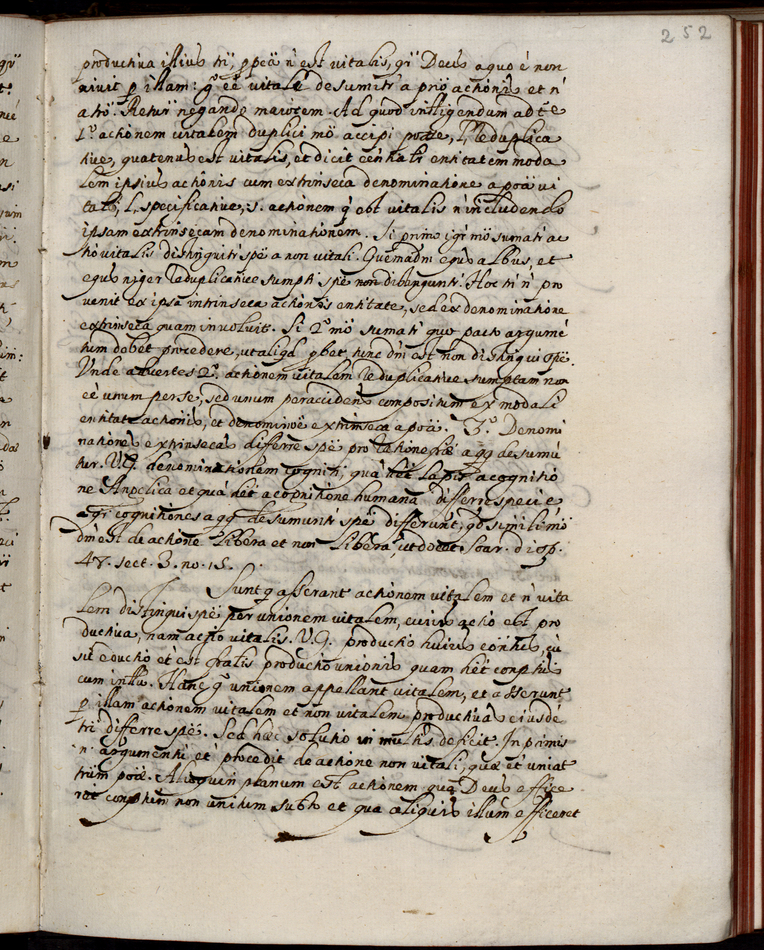 252
productiva illius tñ, ppeã ñ est vitalis, qr̃ Deus a quo é non
vivit p illam: gº eẽ vitalẽ desumitr̃ a priõ actionis et ñ
a trõ. Retur̃ negando maiorem. Ad quod intligendum adte
1º actionem vitalem duplici mõ accipi posse, 1º reduplica
tive, quatenus est vitalis, et dicit eentiali entitatem moda
lem ipsius actionis cum extrinseca denominatione a poã vi
tali, 1, specificative, s. actionem q̃ est vitalis ñ includendo
ipsam extrinsecam denominationem. Si primo igr̃ mõ sumatr̃ ac
tio vitalis distinguitr̃ spẽ a non vitali. Quemadm̃ equs albus, et
equs niger reduplicative sumpti spẽ non distinguntr̃. Hoc tñ ñ pro
venit ex ipsa intrinseca actionis entitate, sed ex denominatione
extrinseca quam involvit. Si 2º mõ sumatr̃ quo pacto argumẽ
tum debet procedere, ut aliqd pbet, tunc dm̃ est non distingui spẽ.
Unde advertes 2º. actionem vitalem reduplicative sumptam non
eẽ unum per se, sed unum per accidens compositum ex modali
entitate actionis, et denominõe extrinseca a poã. 3º. Denomi
nationes extrinsecas differre spẽ pro ratione a qq desumũ
tur. V.g. denominationem cogniti, quã hẽt lapis a cognitio
ne Angelica et quã hẽt a cognitione humana differre specie
qr̃ cognitiones a qq desumuntr̃ spẽ differunt, qd simili mõ
dm̃ est de actione libera et non libera, ut docet Soar. disp.
48. sect. 3. no. 15.
Sunt q asserant actionem vitalem et ñ vita
lem distingui spẽ per unionem vitalem, cuius actio est pro
ductiva, nam actio vitalis. V.g. productio huius
sit eductio et est productio unionis quam hẽt
cum intllũ. Hanc gº unionem appellant vitalem, et asserunt
p illam actionem vitalem et non vitalem productivas eiusdẽ
tri differre spẽ. Sed haec solutio in multis deficit. In primis
ñ argumentũ et procedit de actione non vitali, quae et uniat
poae. Alioquin planum est actionem quã Deus effice
ret non unitum subto et qua aliquis illum efficeret